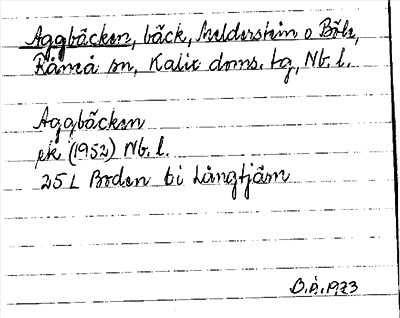 Aggbäcken, bäck, Melderstein o Böle,
Råneå sn, Kalix doms. tg, Nb. l.
Aggbäcken
ek (1952) Nb. l.
25 L Boden bi Långtjärn
1973